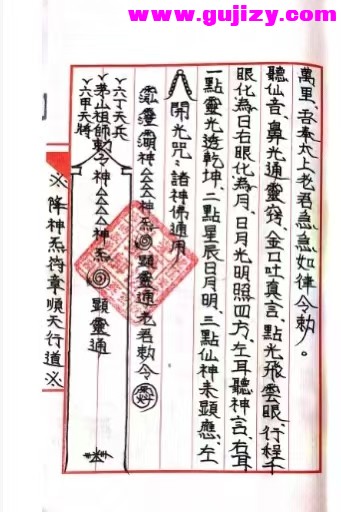 www.gujizy.com
萬里、吾奉太上老君急急如律令勅。
聽仙音、鼻光通靈竅、金口吐真言、點光飛雲眼、行程千
眼化為日右眼化為月、日月光明照四方、左耳聽神言、右耳
一點靈光透乾坤、二點星辰日月明、三點仙神來顯應、左
開光咒：諸神佛通用
神 炁 顯靈通老君勅令
六丁天兵
茅山祖師勅令神 神炁 顯靈通
六甲天將
※降神炁符章順天行道※